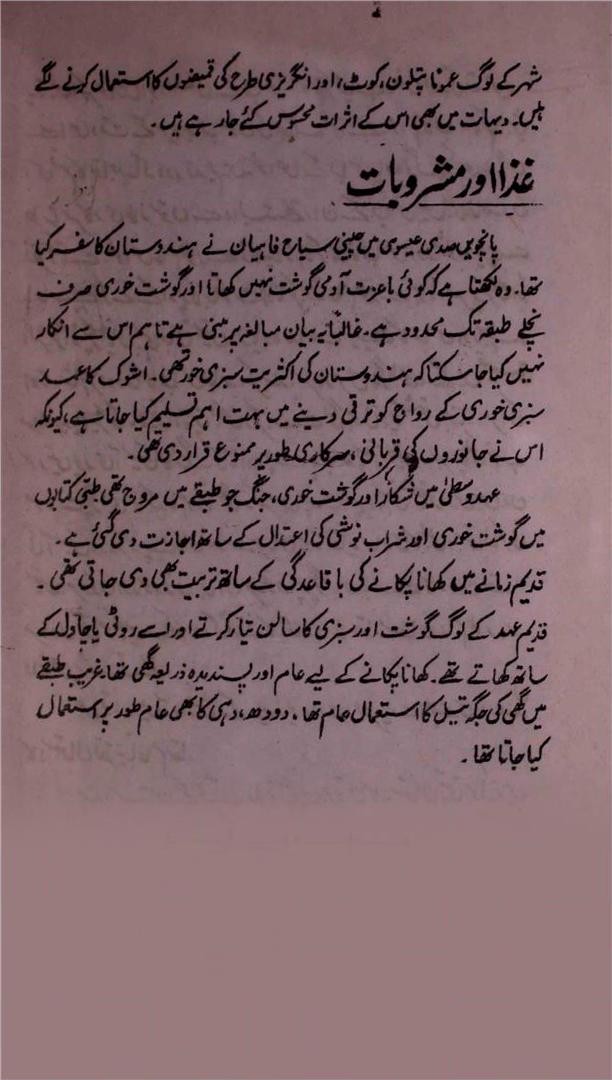 شہر کے لوگ عموماً پتلون، کوٹ، اور انگریزی طرح کی قمیضوں کا استعمال کرنے لگے
ہیں۔ دیہات میں بھی اس کے اثرات محسوس کئے جارہے ہیں۔
غذا اور مشروبات
پانچویں صدی عیسوی میں چینی سیاح فاہیان نے ہندوستان کا سفر کیا
تھا۔ وہ لکھتا ہے کہ کوئی باعزت آدمی گوشت نہیں کھاتا اور گوشت خوری صرف
نچلے طبقہ تک محدود ہے۔ غالباً یہ بیان مبالغہ پر مبنی ہے تاہم اس سے انکار
نہیں کیا جاسکتا کہ ہندوستان کی اکثریت سبزی خور تھی۔ اشوک کا عہد
سبزی خوری کے رواج کو ترقی دینے میں بہت اہم تسلیم کیا جاتا ہے، کیونکہ
اس نے جانوروں کی قربانی، سرکاری طور پر ممنوع قرار دی تھی۔
عہد وسطیٰ میں شکار اور گوشت خوری، جنگ جو طبقے میں مروج تھی طبّی کتابوں
میں گوشت خوری اور شراب نوشی کی اعتدال کے ساتھ اجازت دی گئی ہے۔
قدیم زمانے میں کھانا پکانے کی باقاعدگی کے ساتھ تربیت بھی دی جاتی تھی۔
قدیم عہد کے لوگ گوشت اور سبزی کا سالن تیار کرتے اور اسے روٹی یا چاول کے
ساتھ کھاتے تھے۔ کھانا پکانے کے لیے عام اور پسندیدہ ذریعہ گھی تھا، غریب طبقے
میں گھی کی جگہ تیل کا استعمال عام تھا۔ دودھ، دہی کا بھی عام طور پر استعمال
کیا جاتا تھا۔